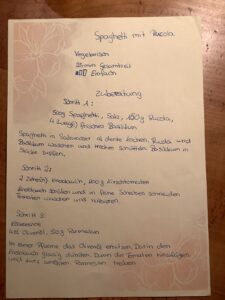 Spaghetti mit Rucola
Vegetarisch
25 min Gesamtzeit
Einfach
Zubereitung
Schritt 1:
500g Spaghetti, Salz, 100g Rucola,
4 Zweig(e) frisches Basilikum
Spaghetti in Salzwasser al dente kochen, Rucola und
Basilikum waschen und trocken schütteln. Basilikum in
Stücke zupfen.
Schritt 2:
2 Zehe(n) Knoblauch, 400g Kirschtomaten
Knoblauch schälen und in feine Scheiben schneiden
Tomaten waschen und halbieren.
Schritt 3:
4 EL Olivenöl, 50g Parmesan
In einer Pfanne das Olivenöl erhitzen. Darin den
Knoblauch glasig dünsten. Dann die Tomaten hinzufügen
und kurz